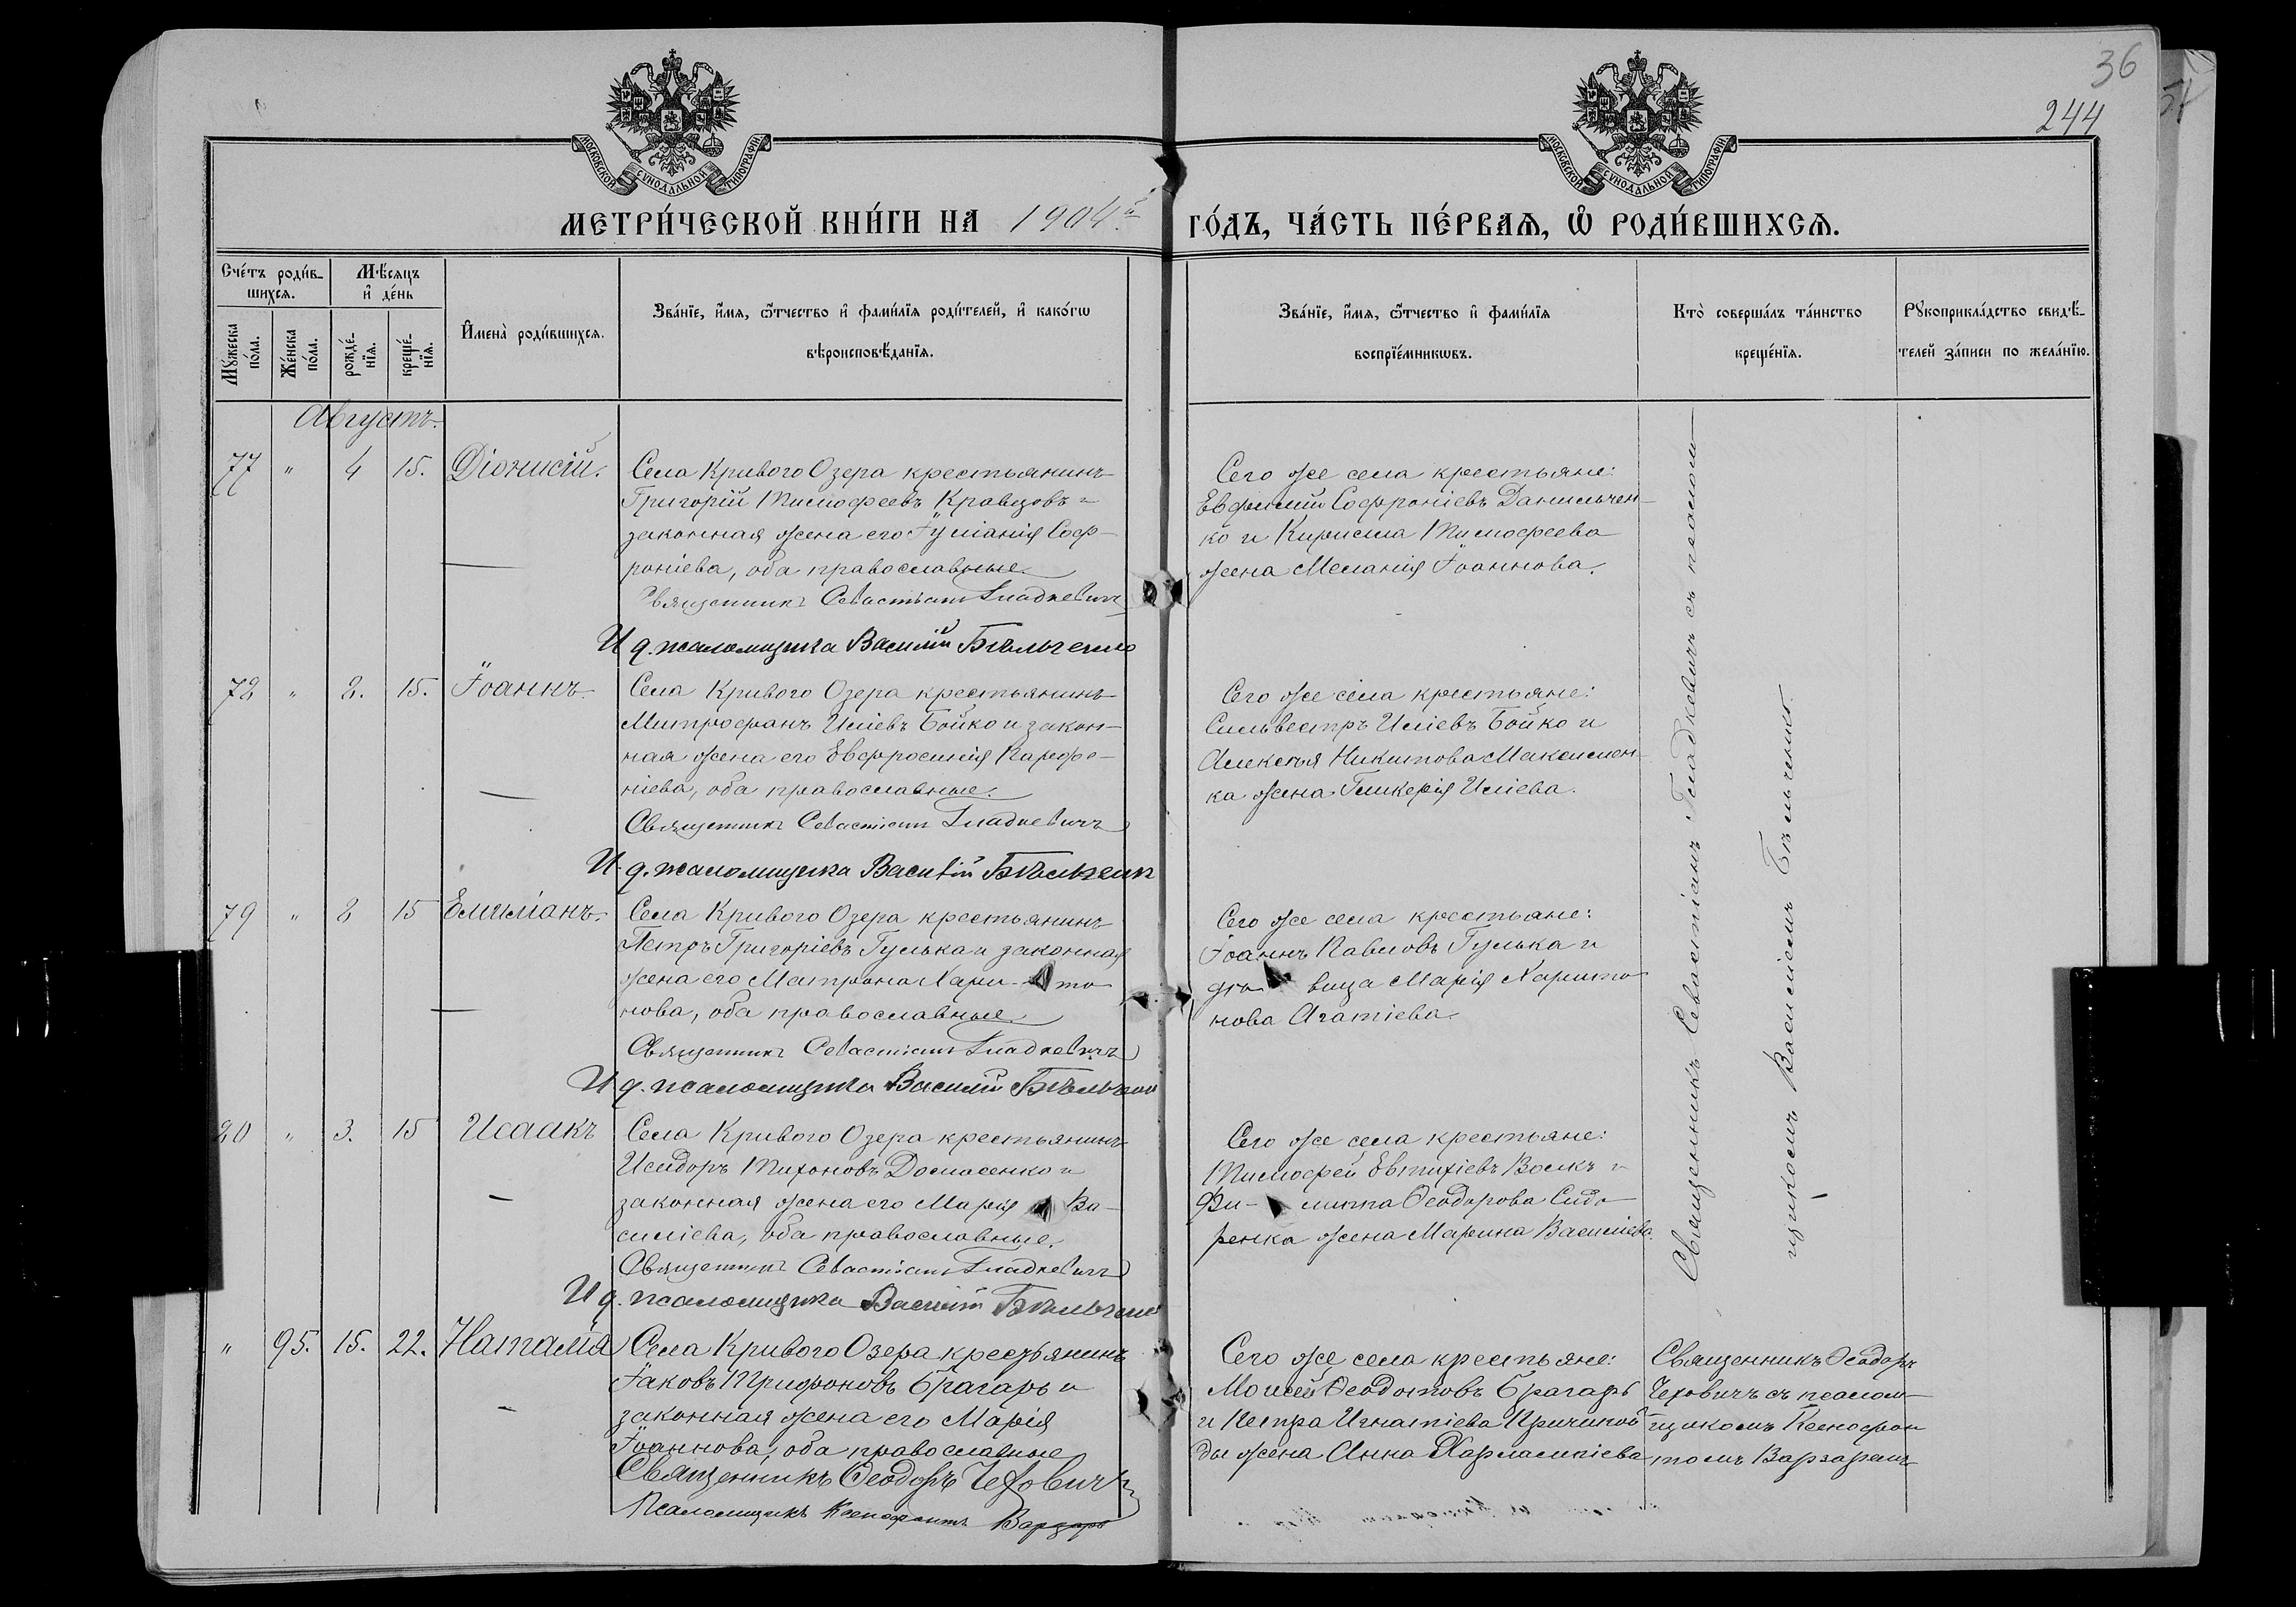 36
244
МОСКОВСКОЙ СѴНОДАЛЬНОЙ ТИПОГРАФІИ.
МОСКОВСКОЙ СѴНОДАЛЬНОЙ ТИПОГРАФІИ.
МЕТРИ́ЧЕСКОЙ КНИ́ГИ НА 1904й
ГО́ДЪ, ЧА́СТЬ ПЕ́РВАѦ, Ѽ РОДИ́ВШИХСѦ.
Сче́тъ роди́в-
шихсѧ.
Мѣ́сяцъ
и҆ де́нь
Мꙋ́жеска
по́ла.
Же́нска
по́ла.
рожде́-
нїѧ.
креще́-
нїѧ.
И҆мена̀ роди́вшихсѧ.
Зва́нїе, и҆́мѧ, ѻ҆́тчество и҆ фами́лїѧ роди́телей, и҆ како́гѡ
вѣроисповѣ́данїѧ.
Зва́нїе, и҆́мѧ, ѻ҆́тчество и҆ фами́лїѧ
воспрїе́мникѡвъ.
Кто̀ соверша́лъ та́инство
креще́нїѧ.
Рꙋкоприкла́дство свидѣ́-
телей за́писи по жела́нїю.
Августъ.
77 " 4 15. Діонисій.
Села Кривого Озера крестьянинъ
Григорій Тимофеевъ Кравцовъ и
законная жена его Іуліанія Соф-
роніева, оба православные.
Священникъ Севастіанъ Гладкевичъ
И д. псаломщика Василій Бѣльченко
Сего же села крестьяне:
Евфимій Софроніевъ Данильчен-
ко и Кирилла Тимофеева
жена Меланія Іоаннова.
78 " 2. 15. Іоаннъ.
Села Кривого Озера крестьянинъ
Митрофанъ Иліевъ Бойко и закон-
ная жена его Евфросинія Парфе-
ніева, оба православные.
Священникъ Севастіанъ Гладкевичъ
И д. псаломщика Василій Бѣльченк
Сего же села крестьяне:
Сильвестръ Иліевъ Бойко и
Алексѣя Никитова Максимен-
ка жена Гликерія Иліева.
79 " 8 15 Емиліанъ.
Села Кривого Озера крестьянинъ
Петръ Григоріевъ Гулька и законная
жена его Матрона Хари-то
нова, оба православные.
Священникъ Севастіанъ Гладкевичъ
И д. псаломщика Василій Бѣльченко
Сего же села крестьяне:
Іоаннъ Павловъ Гулька и
дѣ вица Марія Харито
нова Агатіева.
80 " 3. 15 Исаакъ
Села Кривого Озера крестьянинъ
Исидоръ Тихоновъ Домасенко и
законная жена его Марія Ва-
силіева, оба православные.
Священникъ Севастіанъ Гладкевичъ
И д. псаломщика Василій Бѣльченко
Сего же села крестьяне:
Тимофей Евтихіевъ Волкъ и
Фи- липпа Ѳеодорова Сидо
ренка жена Марина Василіева.
Священникъ Севастіанъ Гладкевичъ съ псалом-
щикомъ Василіемъ Бѣльченко.
" 95. 15. 22. Наталія
Села Кривого Озера крестьянинъ
Іаковъ Трифоновъ Брагарь и
законная жена его Марія
Іоаннова, оба православные
Священникъ Ѳеодоръ Чехович
Псаломщикъ Ксенофонтъ Варзаръ
Сего же села крестьяне:
Моисей Ѳеодотовъ Брагарь
и Петра Игнатіева Причиной
ды жена Анна Харлампіева
Священникъ Ѳеодоръ
Чеховичъ съ псалом-
щикомъ Ксенофон
томъ Варзаремъ